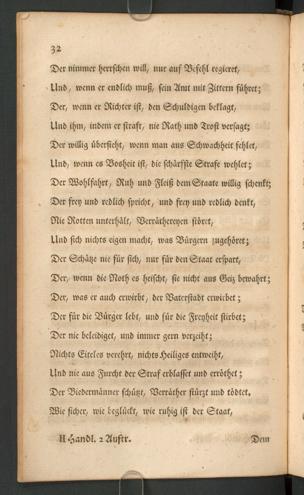 32
Der nimmer herrschen will, nur auf Befehl regieret,
Und, wenn er endlich muß, sein Amt mit Zittern führet;
Der, wenn er Richter ist, den Schuldigen beklagt,
Und ihm, indem er straft, nie Rath und Trost versagt;
Der willig übersieht, wenn man aus Schwachheit fehlet,
Und, wenn es Bosheit ist, die schärfste Strafe wehlet;
Der Wohlfahrt, Ruh und Fleiß dem Staate willig schenkt;
Der frey und redlich spricht, und frey und redlich denkt,
Nie Rotten unterhält, Verräthereyen störet,
Und sich nichts eigen macht, was Bürgern zugehöret;
Der Schätze nie für sich, nur für den Staat erspart,
Der, wenn die Noth es heischt, sie nicht aus Geiz bewahrt;
Der, was er auch erwirbt, der Vaterstadt erwirbet;
Der für die Bürger lebt, und für die Freyheit stirbet;
Der nie beleidiget, und immer gern verzeiht;
Nichts Eiteles verehrt, nichts Heiliges entweiht,
Und nie aus Furcht der Straf erblasset und erröthet;
Der Biedermänner schützt, Verräther stürzt und tödtet.
Wie sicher, wie beglückt, wie ruhig ist der Staat,
II Handl. 2 Auftr. Dem